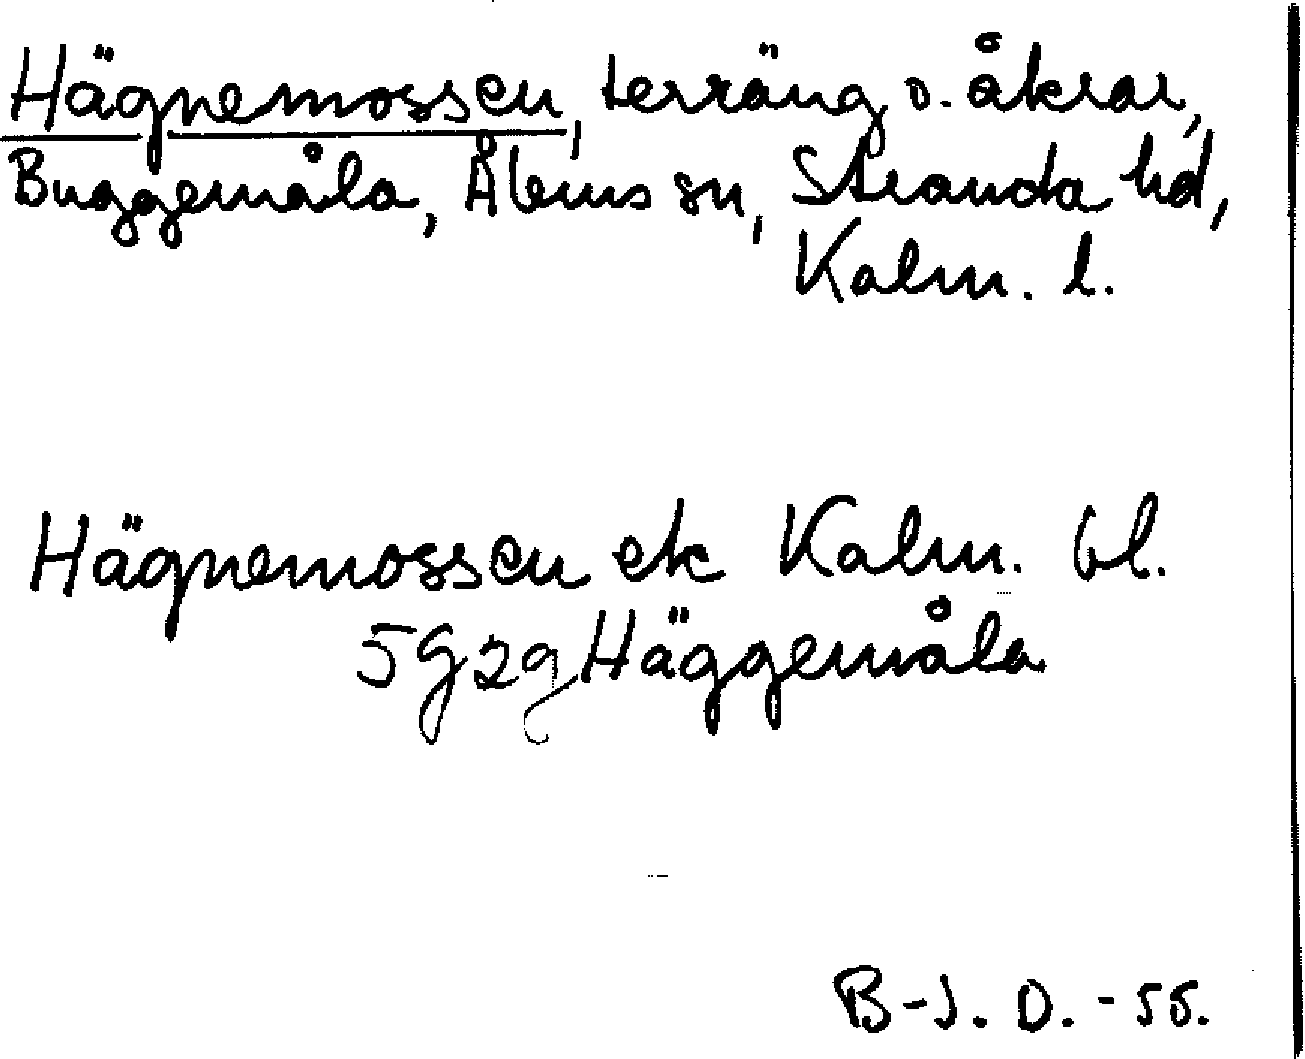 Hägnemossen, terräng o. åkrar,
Buggemåla, Ålems sn, Stranda hd,
Kalm. l.
Hägnemossen ek Kalm. bl.
5G2g Häggemåla
B-J. D. -55.